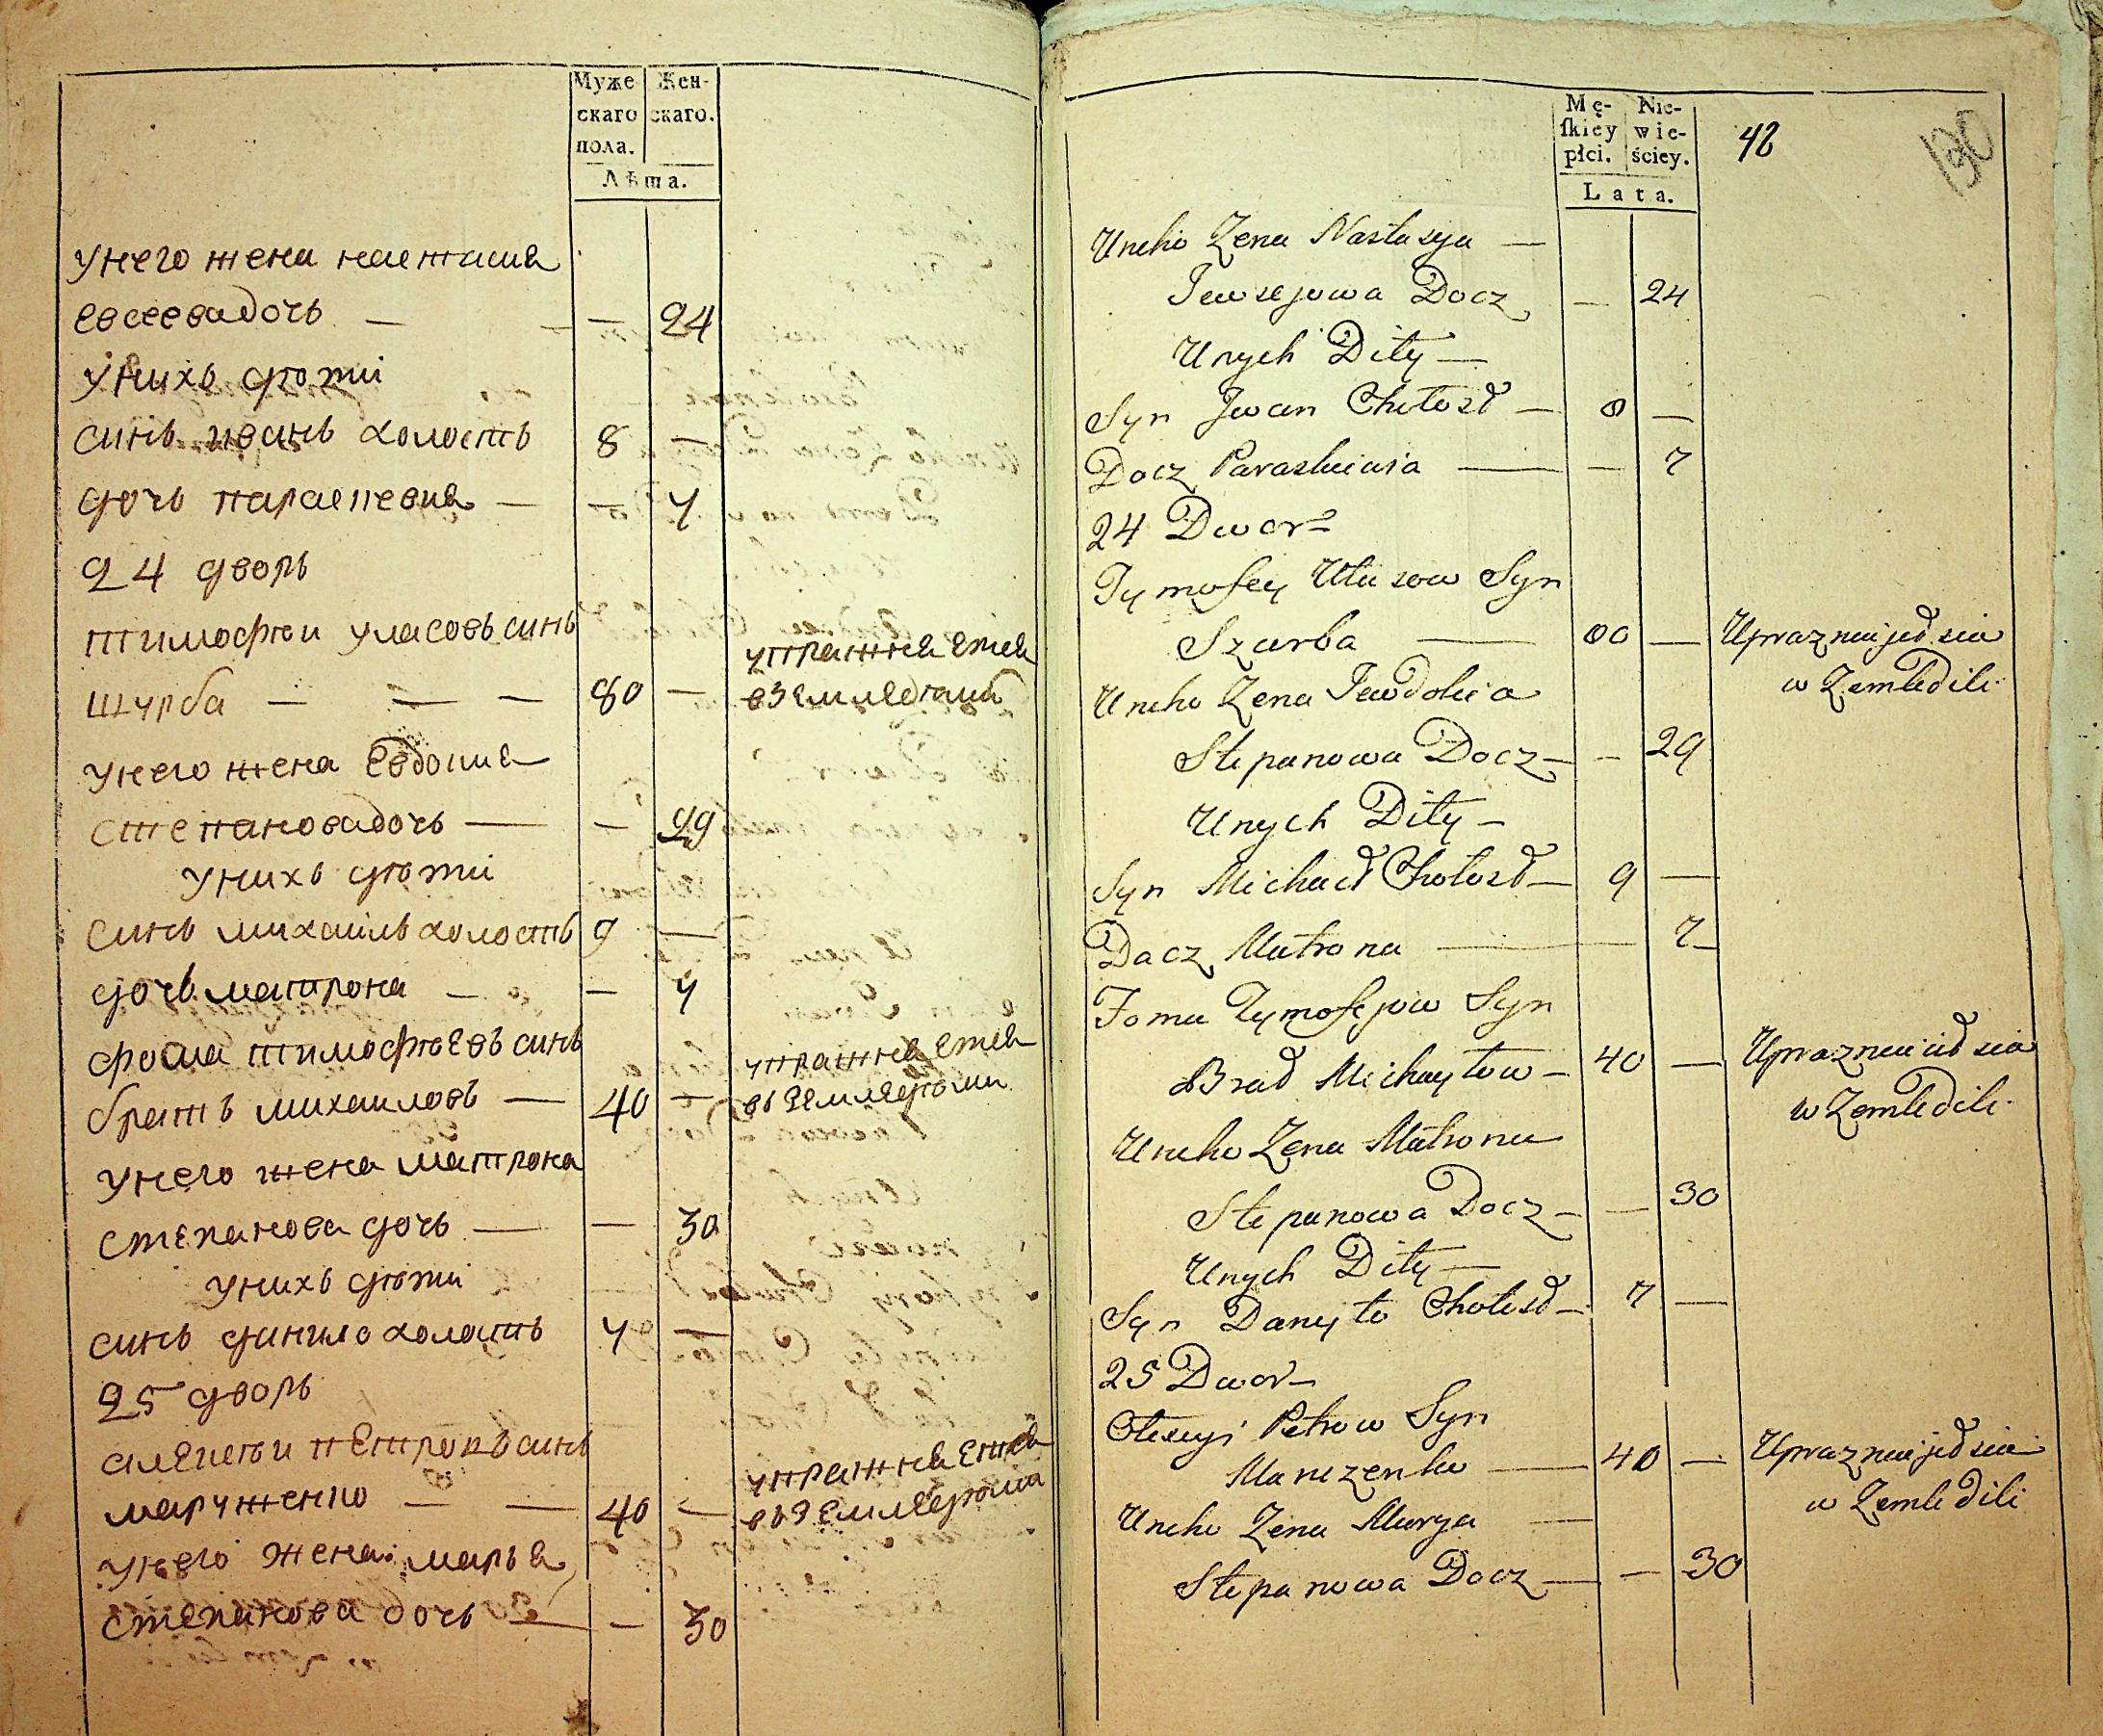 Муже-
скаго
пола.
Жен-
скаго.
Лѣта.
унего жена настасия
евсеева дочь — — 24
унихъ дѣти
синъ иванъ холостъ 8 —
дочь параскевия — — 7
24 дворъ
тимофѣи уласовъ синъ
щурба — — — 80 — упражняется
вземледѣлии
унего жена Евдокия
степанова дочь — — 29
унихъ дѣти
синъ михаилъ холостъ 9 —
дочь матрона — — 7
фома тимофѣевъ синъ
братъ михаиловъ — 40 — упражняется
въ земледѣлии
унего жена матрона
степанова дочь — — 30
унихъ дѣти
синъ данило холостъ 7 —
25 дворъ
алексѣи петровъ синъ
марченко — — 40 — упражняется
въ земледѣлии
унего жена марья
степанова дочь — — 30
Mę-
ſkiey
płci.
Nie-
wie-
ściey.
Lata.
48
130
Uneho Zena Nastasya —
Jewsejowa Docz — 24
Unych Dity —
Syn Jwan Chołost — 8 —
Docz Paraskiwia — — 7
24 Dwor
Tymofey Ułasow Syn
Szurba — 80 — Uprazniajet sia
w Zemledili
Uneho Zena Jewdokia
Stepanowa Docz — — 29
Unych Dity —
Syn Michaił Chołost — 9 —
Docz Matrona — 7
Foma Tymofejow Syn
Brat Michayłow — 40 — Uprazniaiet sia
w Zemledili
Uneho Zena Matrona
Stepanowa Docz — — 30
Unych Dity —
Syn Danyło Chołost — 7 —
25 Dwor —
Ołexyj Petrow Syn
Marczenko — 40 — Uprazniajet sia
w Zemledili
Uneho Zena Marya —
Stepanowa Docz — — 30